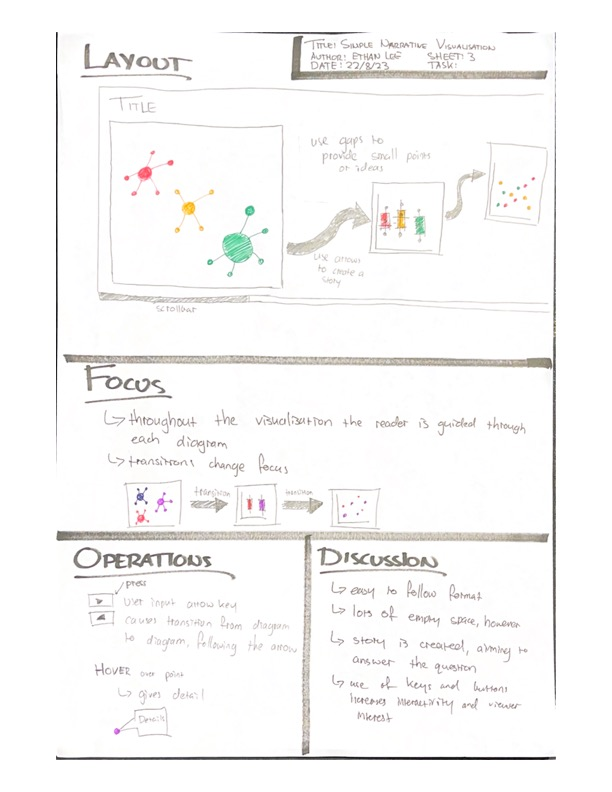 LAYOUT
TITLE: SIMPLE NARRATIVE VISUALISATION
AUTHOR: ETHAN LEE SHEET: 3
DATE: 22/8/23 TASK:
TITLE
use gaps to
provide small points
or ideas
use arrows
to create a
story
scrollbar
FOCUS
throughout the visualisation the reader is guided through
each diagram
transitions change focus
transition
transition
OPERATIONS
press
User input arrow key
causes transition from diagram
to diagram, following the arrow
HOVER over point
gives detail
Details
DISCUSSION
easy to follow format
lots of empty space, however
story is created, aiming to
answer the question
use of keys and buttons
increases interactivity and viewer
interest